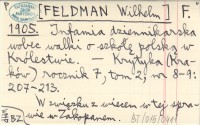 P [FELDMAN Wilhelm] F.
1905.
Infamia dziennikarska
wobec walki o szkołę polską w
Królestwie. — Krytyka (Kra-
ków) rocznik 7, tom 2, nr 8-9:
207-213.
W związku z wiecem w tej spra-
wie w Zakopanem.
BZ